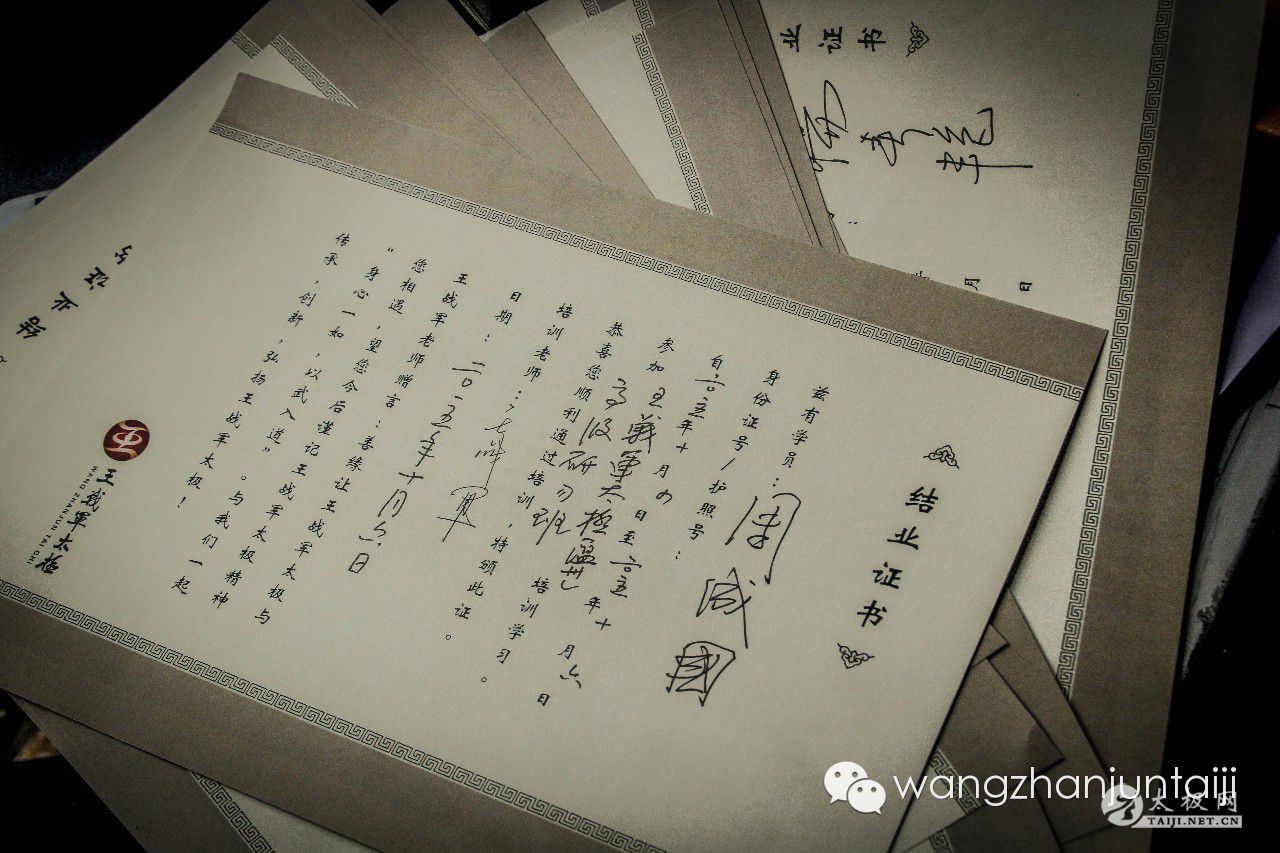 结业证书
兹有学员：周成国
身份证号/护照号：
自二〇一五年十月 日至二〇一五年十月六日
参加王战军太极温州 培训学习。
高级研习班
恭喜您顺利通过培训，特颁此证。
培训老师：王战军
日期：二〇一五年十月六日
王战军老师赠言：善缘让王战军太极与
您相遇，望您今后谨记王战军太极精神
“身心一如，以式入道”。与我们一起
传承，创新，弘扬王战军太极！
王战军太极
WANG ZHANJUN TAI CHI
结业证
业证书
月 日
wangzhanjuntaiji
太极网
TAIJI.NET.CN